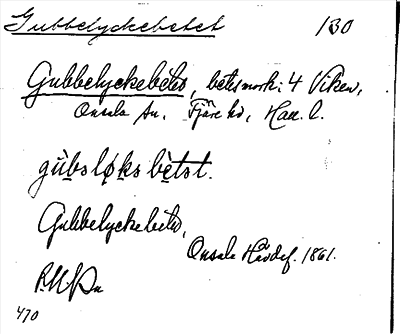 Gubbelyckebetet 130
Gubbelyckebetet, betesmark: 4 Viken,
Onsala sn. Fjäre hd, Hall. l.
gùbsløks bètst.
Gubbelyckebetet,
Onsala Hävdef. 1861.
470